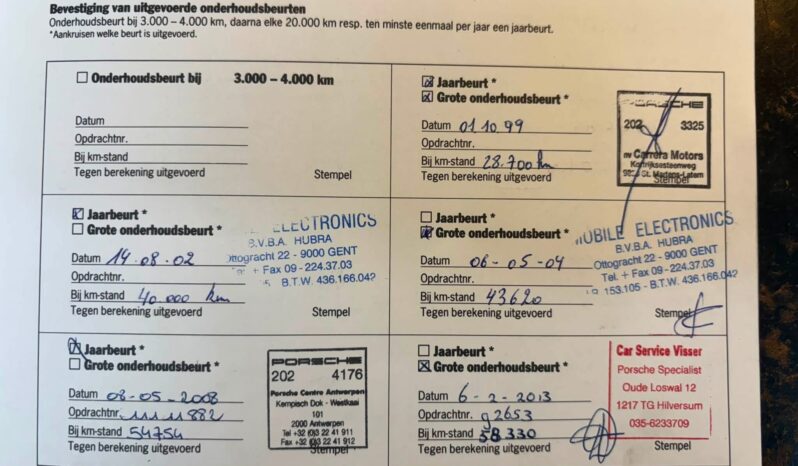 Bevestiging van uitgevoerde onderhoudsbeurten
Onderhoudsbeurt bij 3.000 – 4.000 km, daarna elke 20.000 km resp. ten minste eenmaal per jaar een jaarbeurt.
*Aankruisen welke beurt is uitgevoerd.
Onderhoudsbeurt bij 3.000 – 4.000 km
Datum
Opdrachtnr.
Bij km-stand
Tegen berekening uitgevoerd Stempel
Jaarbeurt *
Grote onderhoudsbeurt *
Datum 01 10 99
Opdrachtnr.
Bij km-stand 28.700 km
Tegen berekening uitgevoerd Stempel
PORSCHE
202 3325
nv Carrera Motors
Kortrijksesteenweg
St. Martens-Latem
Jaarbeurt *
Grote onderhoudsbeurt *
Datum 14.08.02
Opdrachtnr.
Bij km-stand 40.000 km
Tegen berekening uitgevoerd Stempel
ELECTRONICS
B.V.B.A. HUBRA
Ottogracht 22 - 9000 GENT
+ Fax 09 - 224.37.03
B.T.W. 436.166.042
Jaarbeurt *
Grote onderhoudsbeurt *
Datum 06-05-04
Opdrachtnr.
Bij km-stand 43620
Tegen berekening uitgevoerd Stempel
MOBILE ELECTRONICS
B.V.B.A. HUBRA
Ottogracht 22 - 9000 GENT
Tel. + Fax 09 - 224.37.03
153.105 - B.T.W. 436.166.042
Jaarbeurt *
Grote onderhoudsbeurt *
Datum 08-05-2008
Opdrachtnr. 111 11 882
Bij km-stand 54754
Tegen berekening uitgevoerd Stempel
PORSCHE
202 4176
Porsche Centre Antwerpen
Kempisch Dok - Westkaai
101
2000 Antwerpen
Tel +32 (0)3 22 41 911
Fax +32 (0)3 22 41 912
Jaarbeurt *
Grote onderhoudsbeurt *
Datum 6-2-2013
Opdrachtnr. g2653
Bij km-stand 58.330
Tegen berekening uitgevoerd Stempel
Car Service Visser
Porsche Specialist
Oude Loswal 12
1217 TG Hilversum
035-6233709